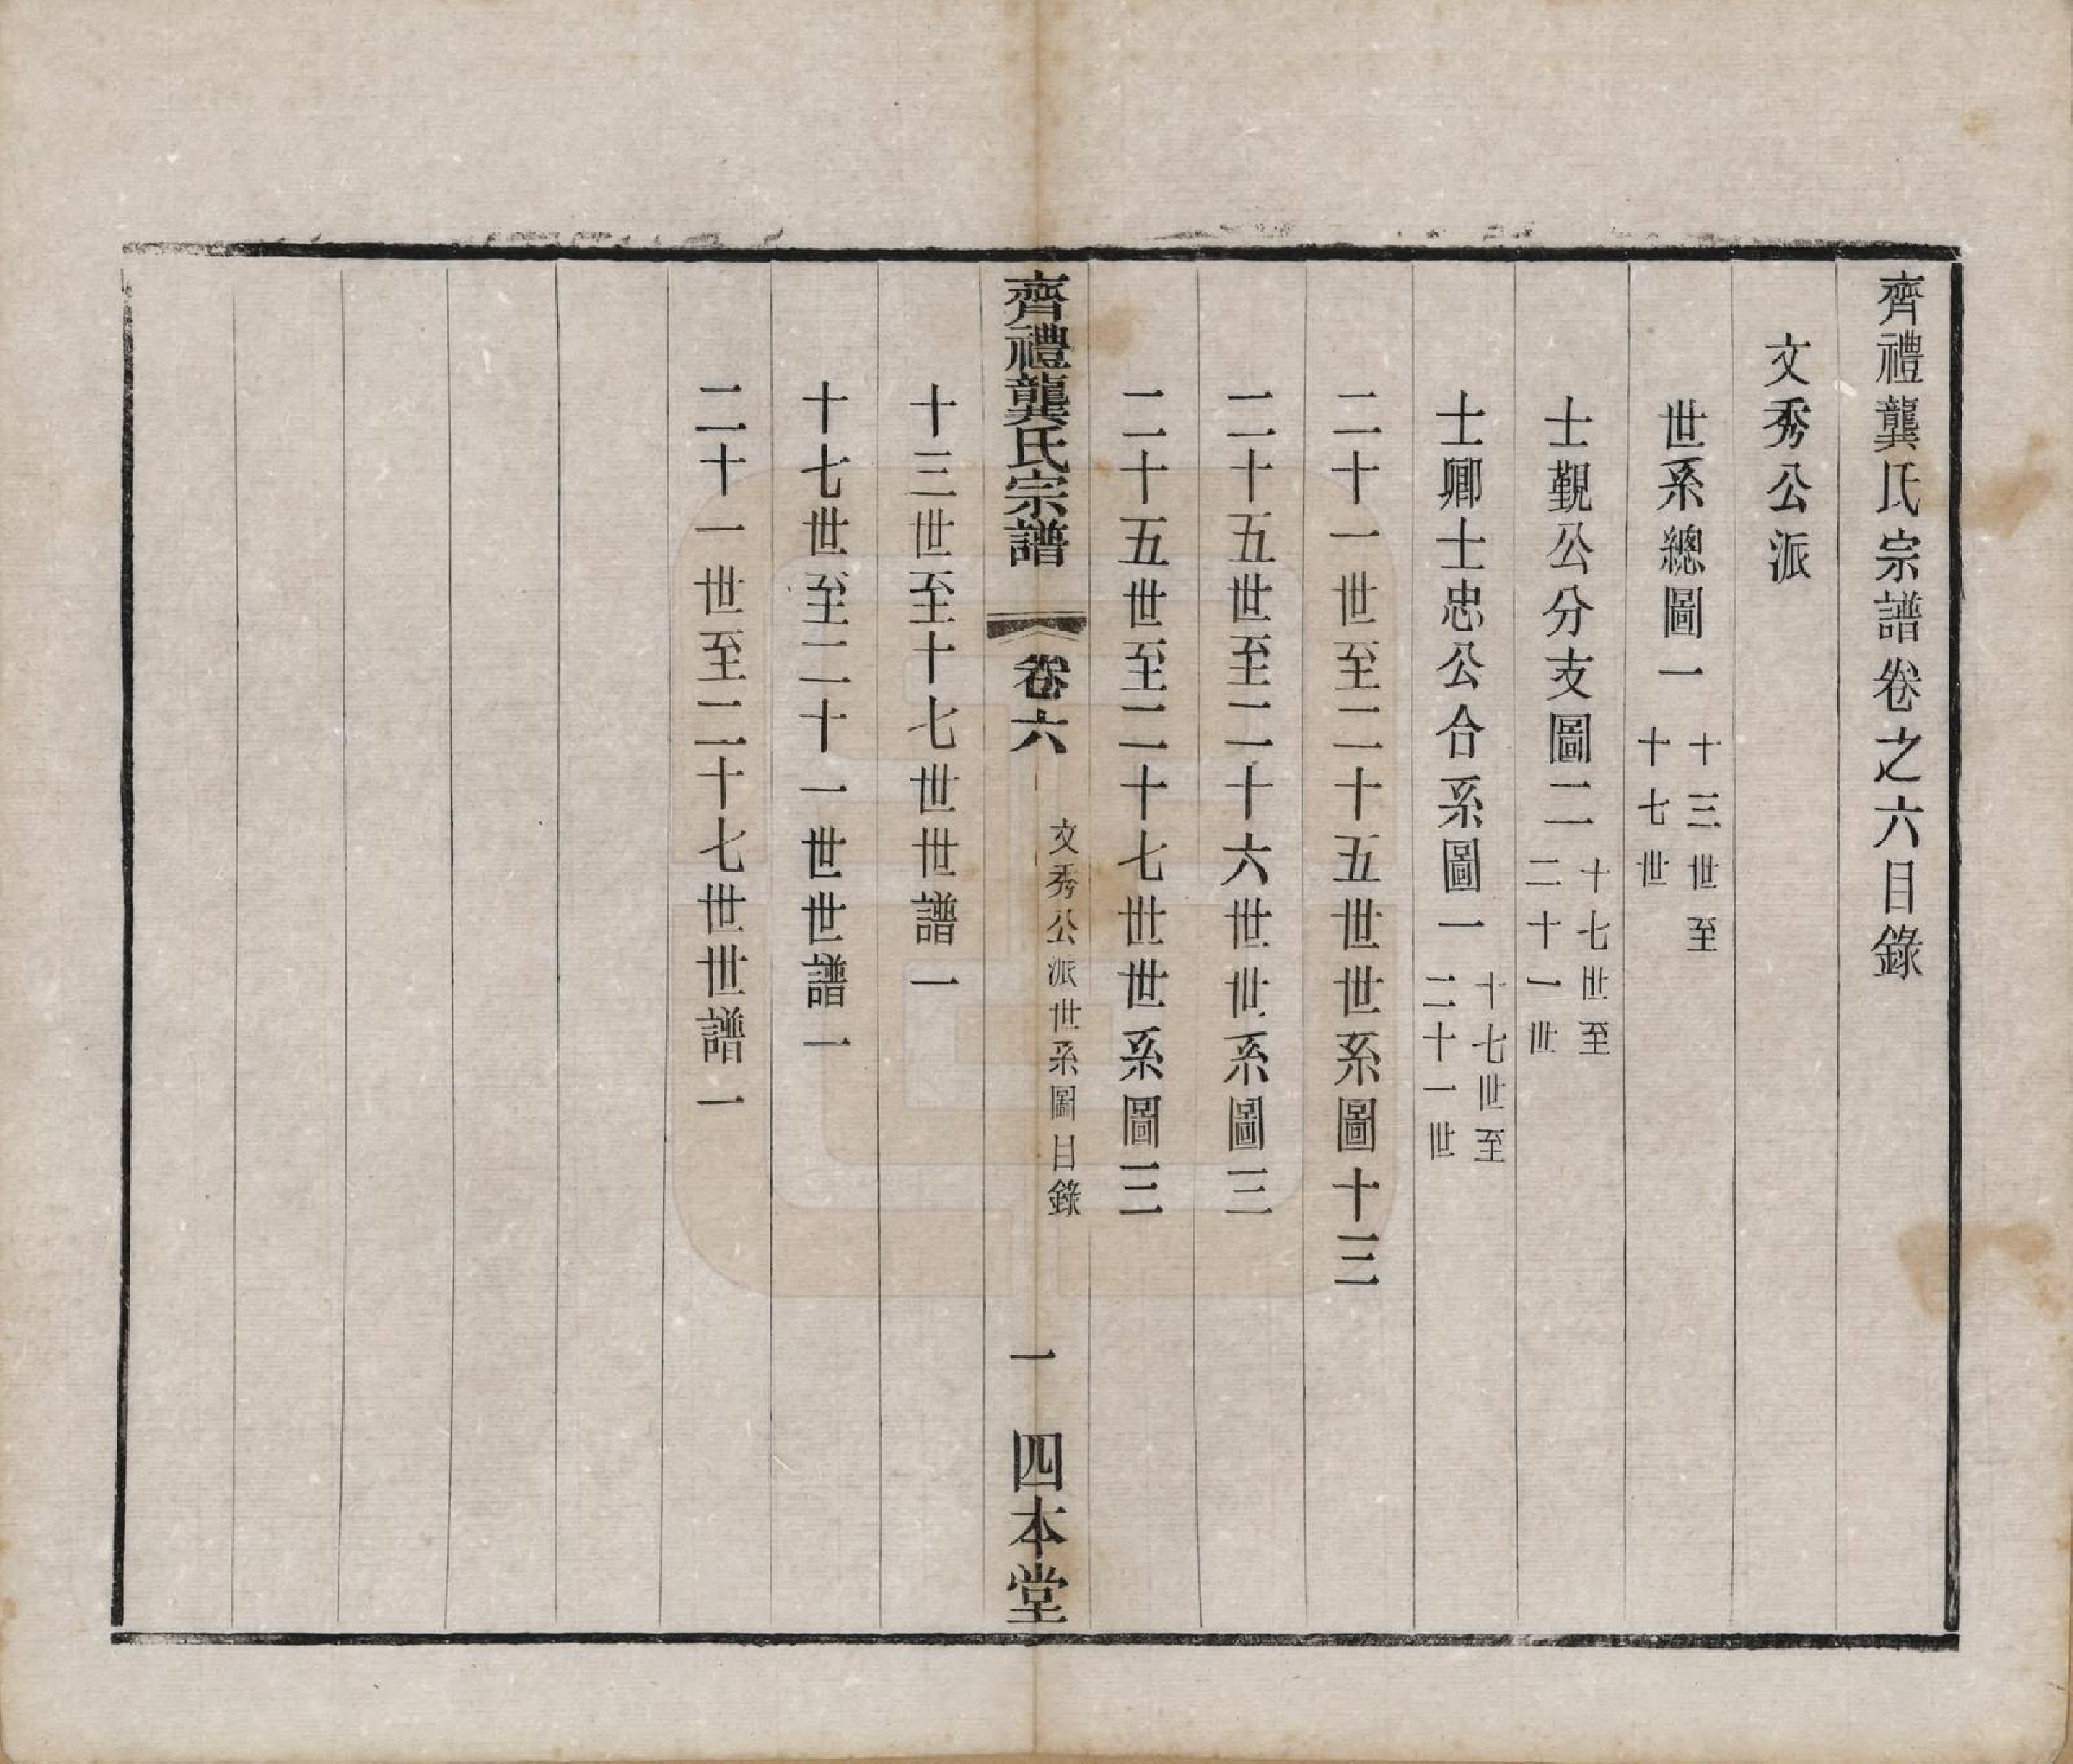 齊禮龔氏宗譜卷之六目錄
文秀公派
世系總圖一 十三世至十七世
士覲公分支圖二 十七世至二十一世
士卿士忠公合系圖一 十七世至二十一世
二十一世至二十五世世系圖十三
二十五世至二十六世世系圖三
二十五世至二十七世世系圖三
齊禮龔氏宗譜 卷六 文秀公派世系圖目錄 一 四本堂
十三世至十七世世譜一
十七世至二十一世世譜一
二十一世至二十七世世譜一